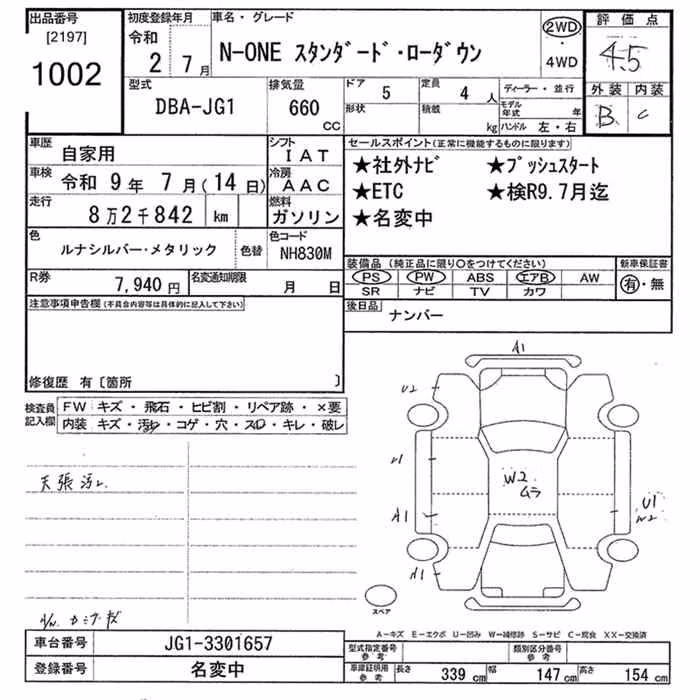 出品番号
[2197]
1002
初度登録年月
令和
2 7月
車名・グレード
N-ONE スタンダード・ローダウン
2WD
・
4WD
評価点
4.5
外装 内装
B C
型式
DBA-JG1
排気量
660
CC
ドア 5
形状
定員 4 人
積載 kg
ディーラー・並行
モデル年式 年
ハンドル 左・右
車歴 自家用
シフト IAT
車検 令和 9年 7月(14日)
冷房 AAC
走行 8万2千842 km
燃料 ガソリン
色 ルナシルバー・メタリック
色替
色コード NH830M
R券 7,940円
名変期限 月 日
セールスポイント(正常に機能するものに限ります)
★社外ナビ ★プッシュスタート
★ETC ★検R9.7月迄
★名変中
装備品(純正品に限り○をつけてください)
PS PW ABS エアB AW
SR ナビ TV カワ
新車保証書
有・無
後日品
ナンバー
注意事項申告欄(不具合内容等は具体的に記入して下さい)
修復歴 有〔箇所 〕
検査員記入欄
FW キズ・飛石・ヒビ割・リペア跡・×要
内装 キズ・汚レ・コゲ・穴・スレ・キレ・破レ
天張汚レ
A1
U2
U1
A1
A1
W2
ムラ
U1
W2
スペア
A-キズ E-エクボ U-凹み W-補修跡 S-サビ C-腐食 XX-交換済
車台番号 JG1-3301657
登録番号 名変中
型式指定番号
参考
類別区分番号
参考
車庫証明用
参考
長さ 339 cm 幅 147 cm 高さ 154 cm